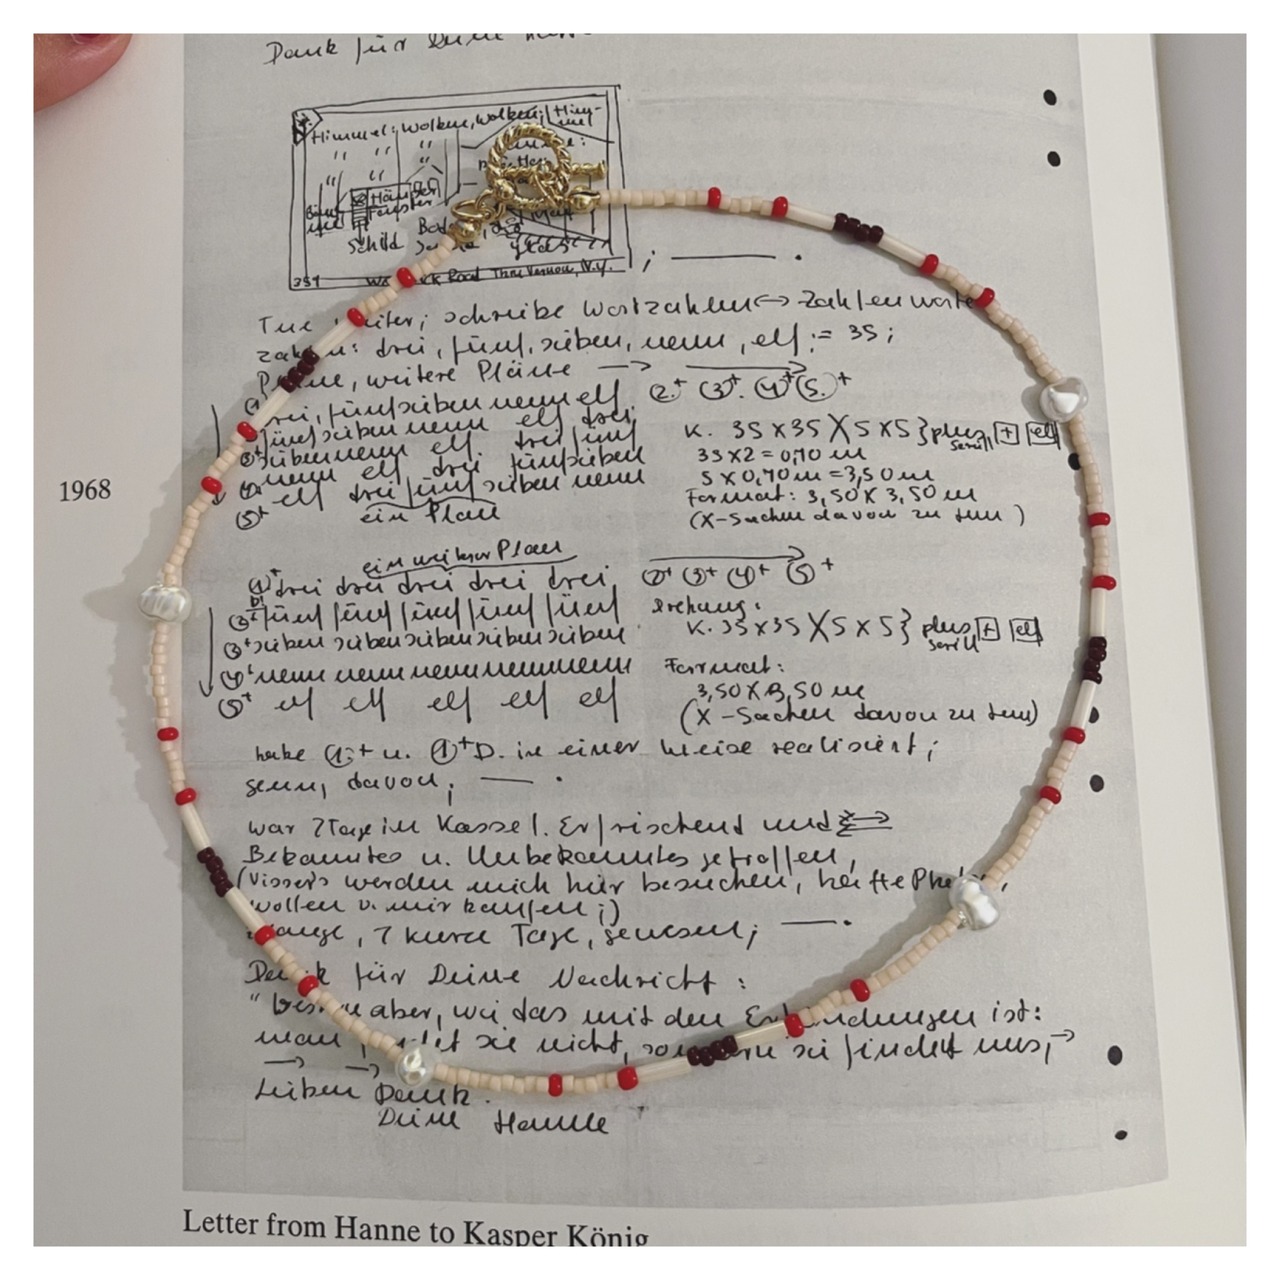 Dank für Deine
Himmel: Wolken, Wolken, Him-
mel
" " "
" "
Häuser
Fenster
Schild
glas
354 Road Vernon, N.Y. ; —— .
Tue weiter; schreibe Wortzahlen ↔ Zahlenworte
zahlen: drei, fünf, sieben, neun, elf := 35;
Pläne, weitere Pläne → →
drei, fünf sieben neun elf 2.+ 3+. 4+ 5.+
fünf sieben neun elf drei
3+ sieben neun elf drei fünf K. 35 X 35 X 5 X 5 } plus + elf
seriell
neun elf drei fünf sieben 35 X 2 = 0,70 m
5+ elf drei fünf sieben neun 5 X 0,70 m = 3,50 m
ein Plan Format: 3,50 X 3,50 m
(X-Sachen davon zu tun)
1968
ein weiterer Plan
1+ drei drei drei drei drei 2+ 3+ 4+ 5+
fünf fünf fünf fünf fünf Drehung:
3+ sieben sieben sieben sieben sieben K. 35 X 35 X 5 X 5 } plus + elf
seriell
4+ neun neun neun neun neun Format:
5+ elf elf elf elf elf 3,50 X 3,50 m
(X-Sachen davon zu tun)
habe 1.+ u. 1+D. in einer Weise realisiert;
davon; —— .
war 7 Tage in Kassel. Erfrischend und
Bekanntes u. Unbekanntes getroffen,
(Vissers werden mich hier besuchen, hatte
wollen v. mir kaufen;)
lange, 7 kurze Tage, gewesen; —— .
Dank für Deine Nachricht:
" aber, wie das mit den Erfindungen ist:
man findet sie nicht, sondern sie findet uns, →
→ →
Lieben Dank.
Deine Hanne
Letter from Hanne to Kasper König